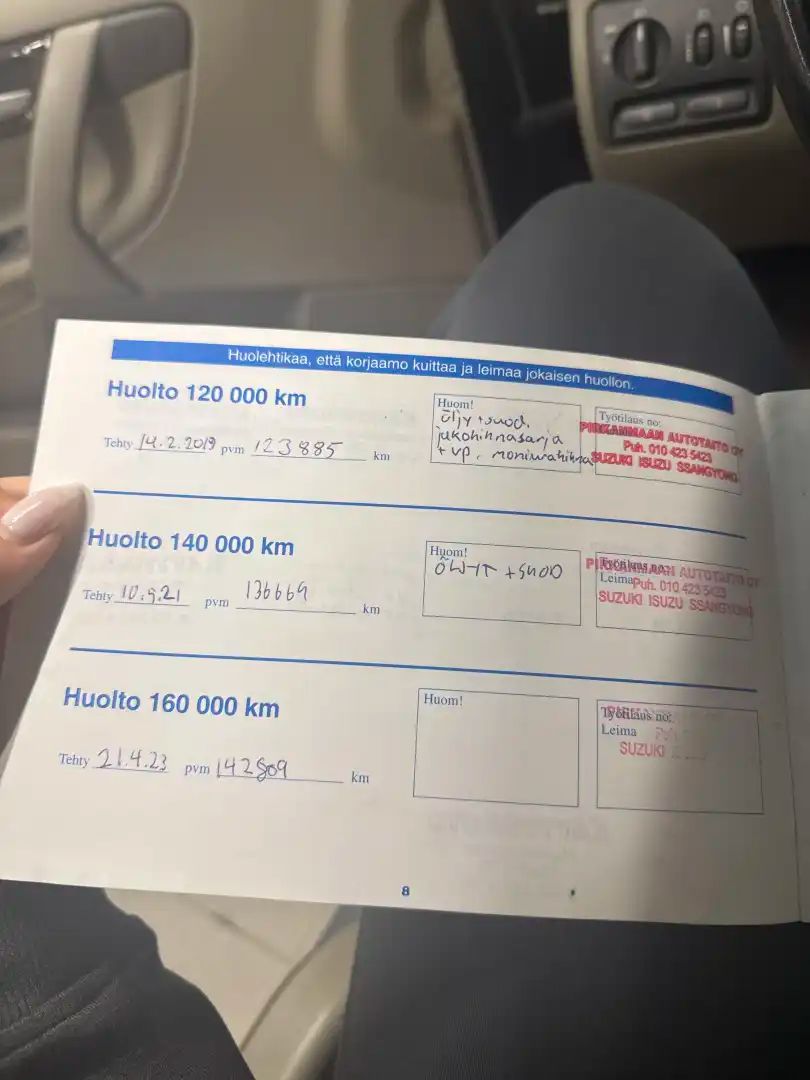 Huolehtikaa, että korjaamo kuittaa ja leimaa jokaisen huollon.
Huolto 120 000 km
Tehty 14.2.2019 pvm 123885 km
Huom!
öljy + suod.
jakohihnasarja
+ vp. moniurahihna
Työtilaus no:
PIRKANMAAN AUTOTAITO OY
Puh. 010 423 5423
SUZUKI ISUZU SSANGYONG
Huolto 140 000 km
Tehty 10.9.21 pvm 136669 km
Huom!
ÖLJYT + SUOD
Työtilaus no:
Leima
PIRKANMAAN AUTOTAITO OY
Puh. 010 423 5423
SUZUKI ISUZU SSANGYONG
Huolto 160 000 km
Tehty 21.4.23 pvm 142809 km
Huom!
Työtilaus no:
Leima
SUZUKI
8